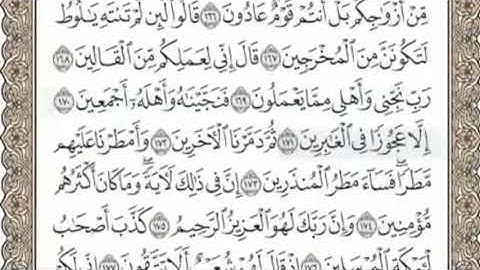 مِّنْ أَزْوَٰجِكُم بَلْ أَنتُمْ قَوْمٌ عَادُونَ ١٦٦ قَالُوا۟ لَئِن لَّمْ تَنتَهِ يَـٰلُوطُ
لَتَكُونَنَّ مِنَ ٱلْمُخْرَجِينَ ١٦٧ قَالَ إِنِّى لِعَمَلِكُم مِّنَ ٱلْقَالِينَ ١٦٨
رَبِّ نَجِّنِى وَأَهْلِى مِمَّا يَعْمَلُونَ ١٦٩ فَنَجَّيْنَـٰهُ وَأَهْلَهُۥٓ أَجْمَعِينَ ١٧٠
إِلَّا عَجُوزًا فِى ٱلْغَـٰبِرِينَ ١٧١ ثُمَّ دَمَّرْنَا ٱلْـَٔاخَرِينَ ١٧٢ وَأَمْطَرْنَا عَلَيْهِم
مَّطَرًا ۖ فَسَآءَ مَطَرُ ٱلْمُنذَرِينَ ١٧٣ إِنَّ فِى ذَٰلِكَ لَـَٔايَةً ۖ وَمَا كَانَ أَكْثَرُهُم
مُّؤْمِنِينَ ١٧٤ وَإِنَّ رَبَّكَ لَهُوَ ٱلْعَزِيزُ ٱلرَّحِيمُ ١٧٥ كَذَّبَ أَصْحَـٰبُ
لْـَٔيْكَةِ ٱلْمُرْسَلِينَ ١٧٦ إِذْ قَالَ لَهُمْ شُعَيْبٌ أَلَا تَتَّقُونَ ١٧٧ إِنِّى لَكُمْ